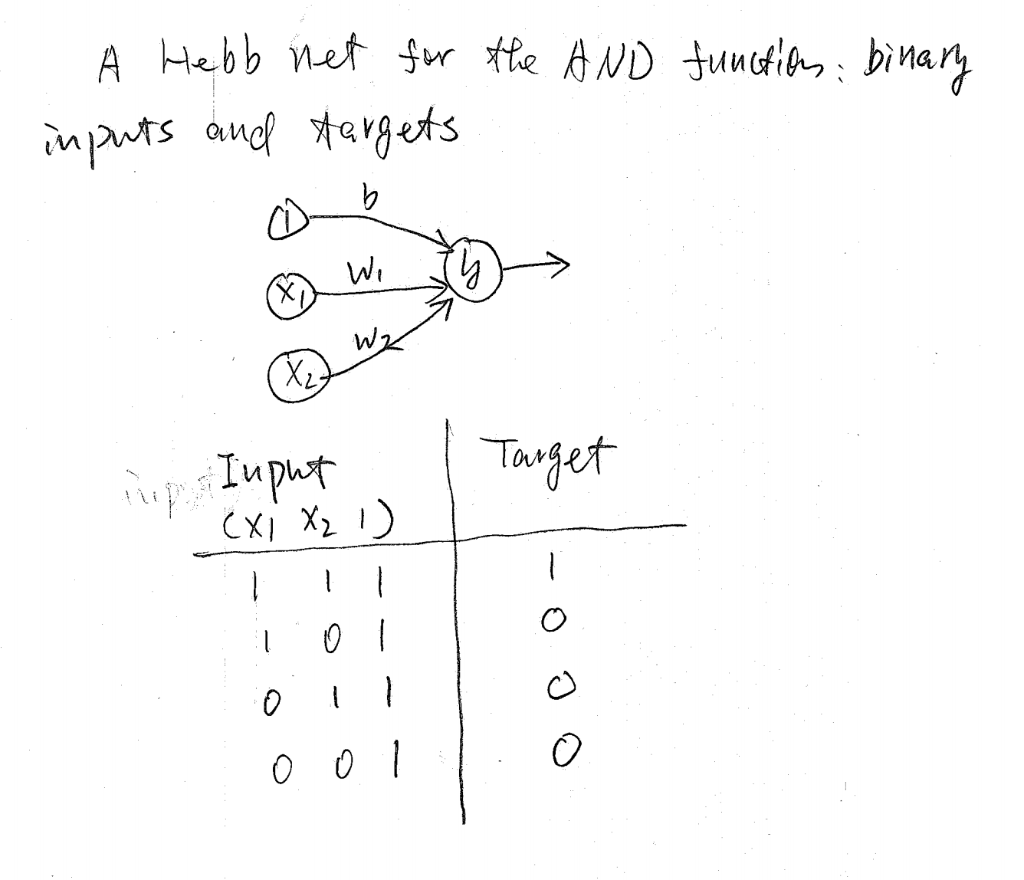 A Hebb net for the AND function: binary
inputs and targets
1 b
x1 w1 y
x2 w2
Input Target
(x1 x2 1)
1 1 1 1
1 0 1 0
0 1 1 0
0 0 1 0